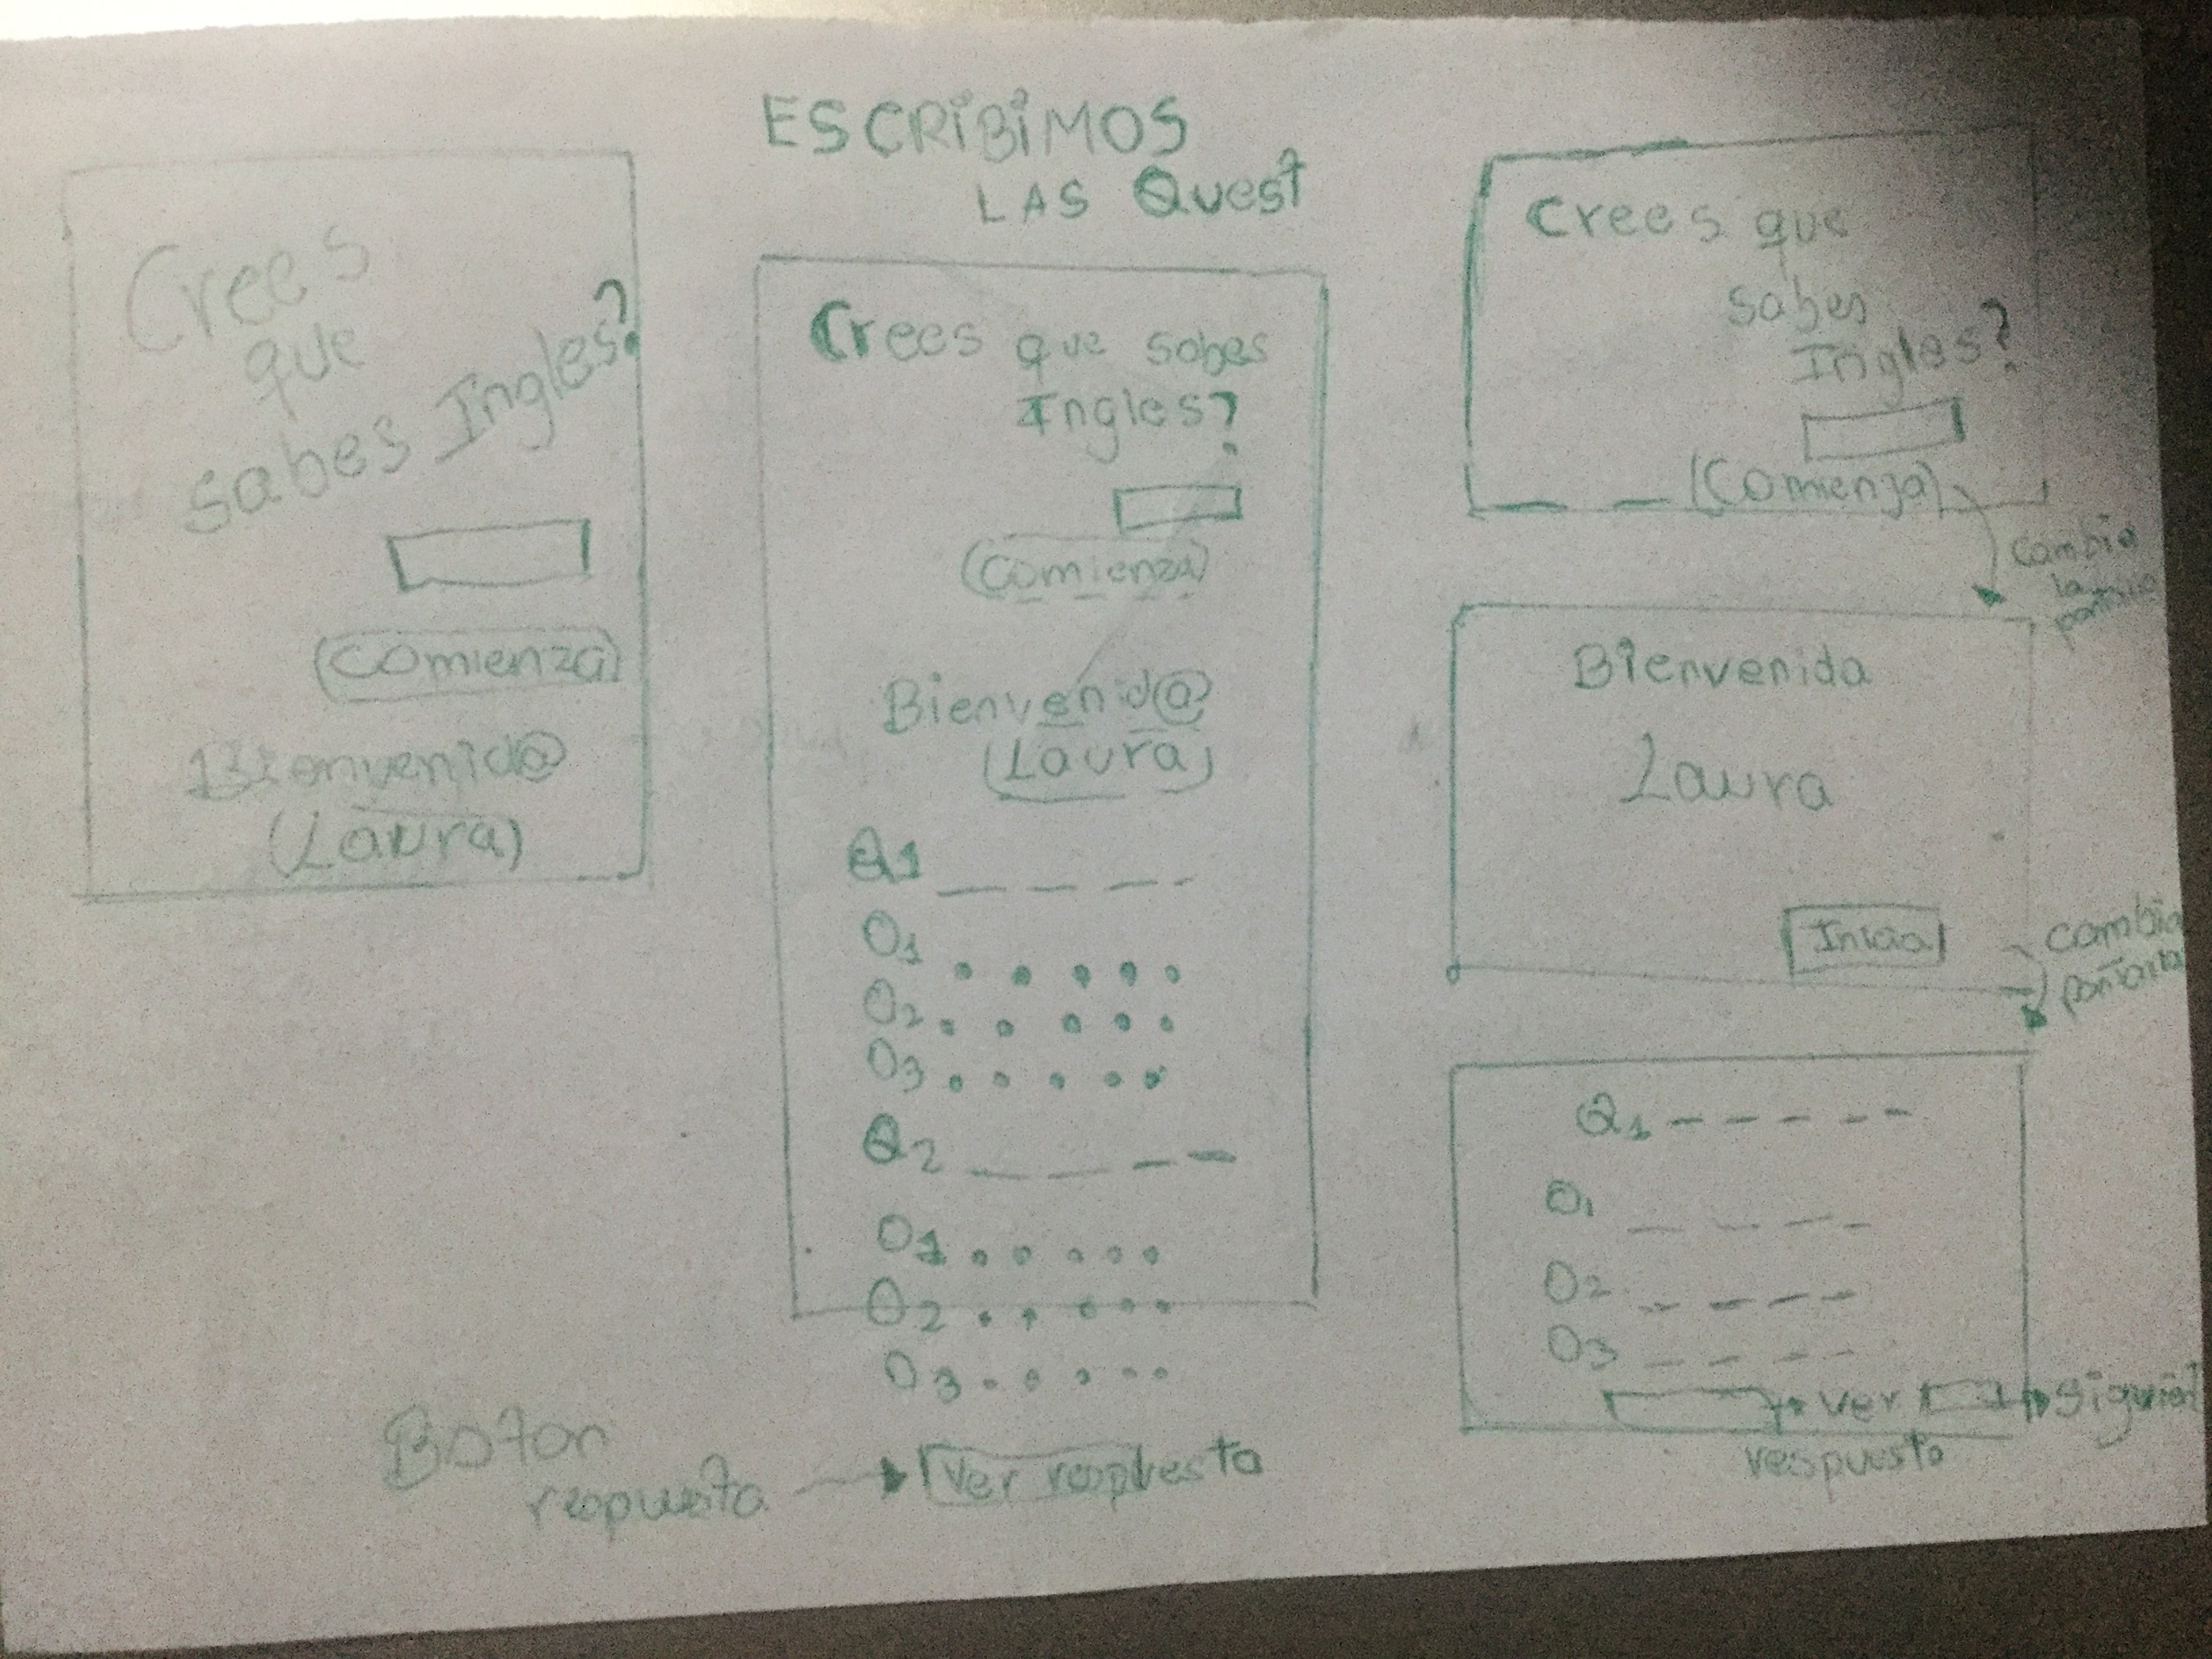 ESCRIBIMOS
LAS Quest
Crees
que
sabes Ingles?
(Comienza)
Bienvenid@
(Laura)
Crees que sabes
Ingles?
(Comienza)
Bienvenid@
(Laura)
Q1
O1
O2
O3
Q2
O1
O2
O3
Boton
respuesta
Ver respuesta
Crees que
sabes
Ingles?
(Comienza)
Cambia
la
Bienvenida
Laura
Inicia
Cambia
pantalla
Q1
O1
O2
O3
Ver
respuesta